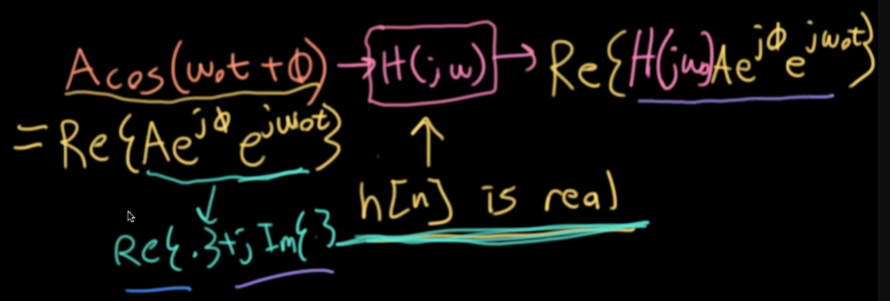 A cos(ω₀t + ϕ) → H(jω) → Re{H(jω₀)Ae^{jϕ} e^{jω₀t}}
= Re{Ae^{jϕ} e^{jω₀t}}
h[n] is real
Re{.}+j Im{.}